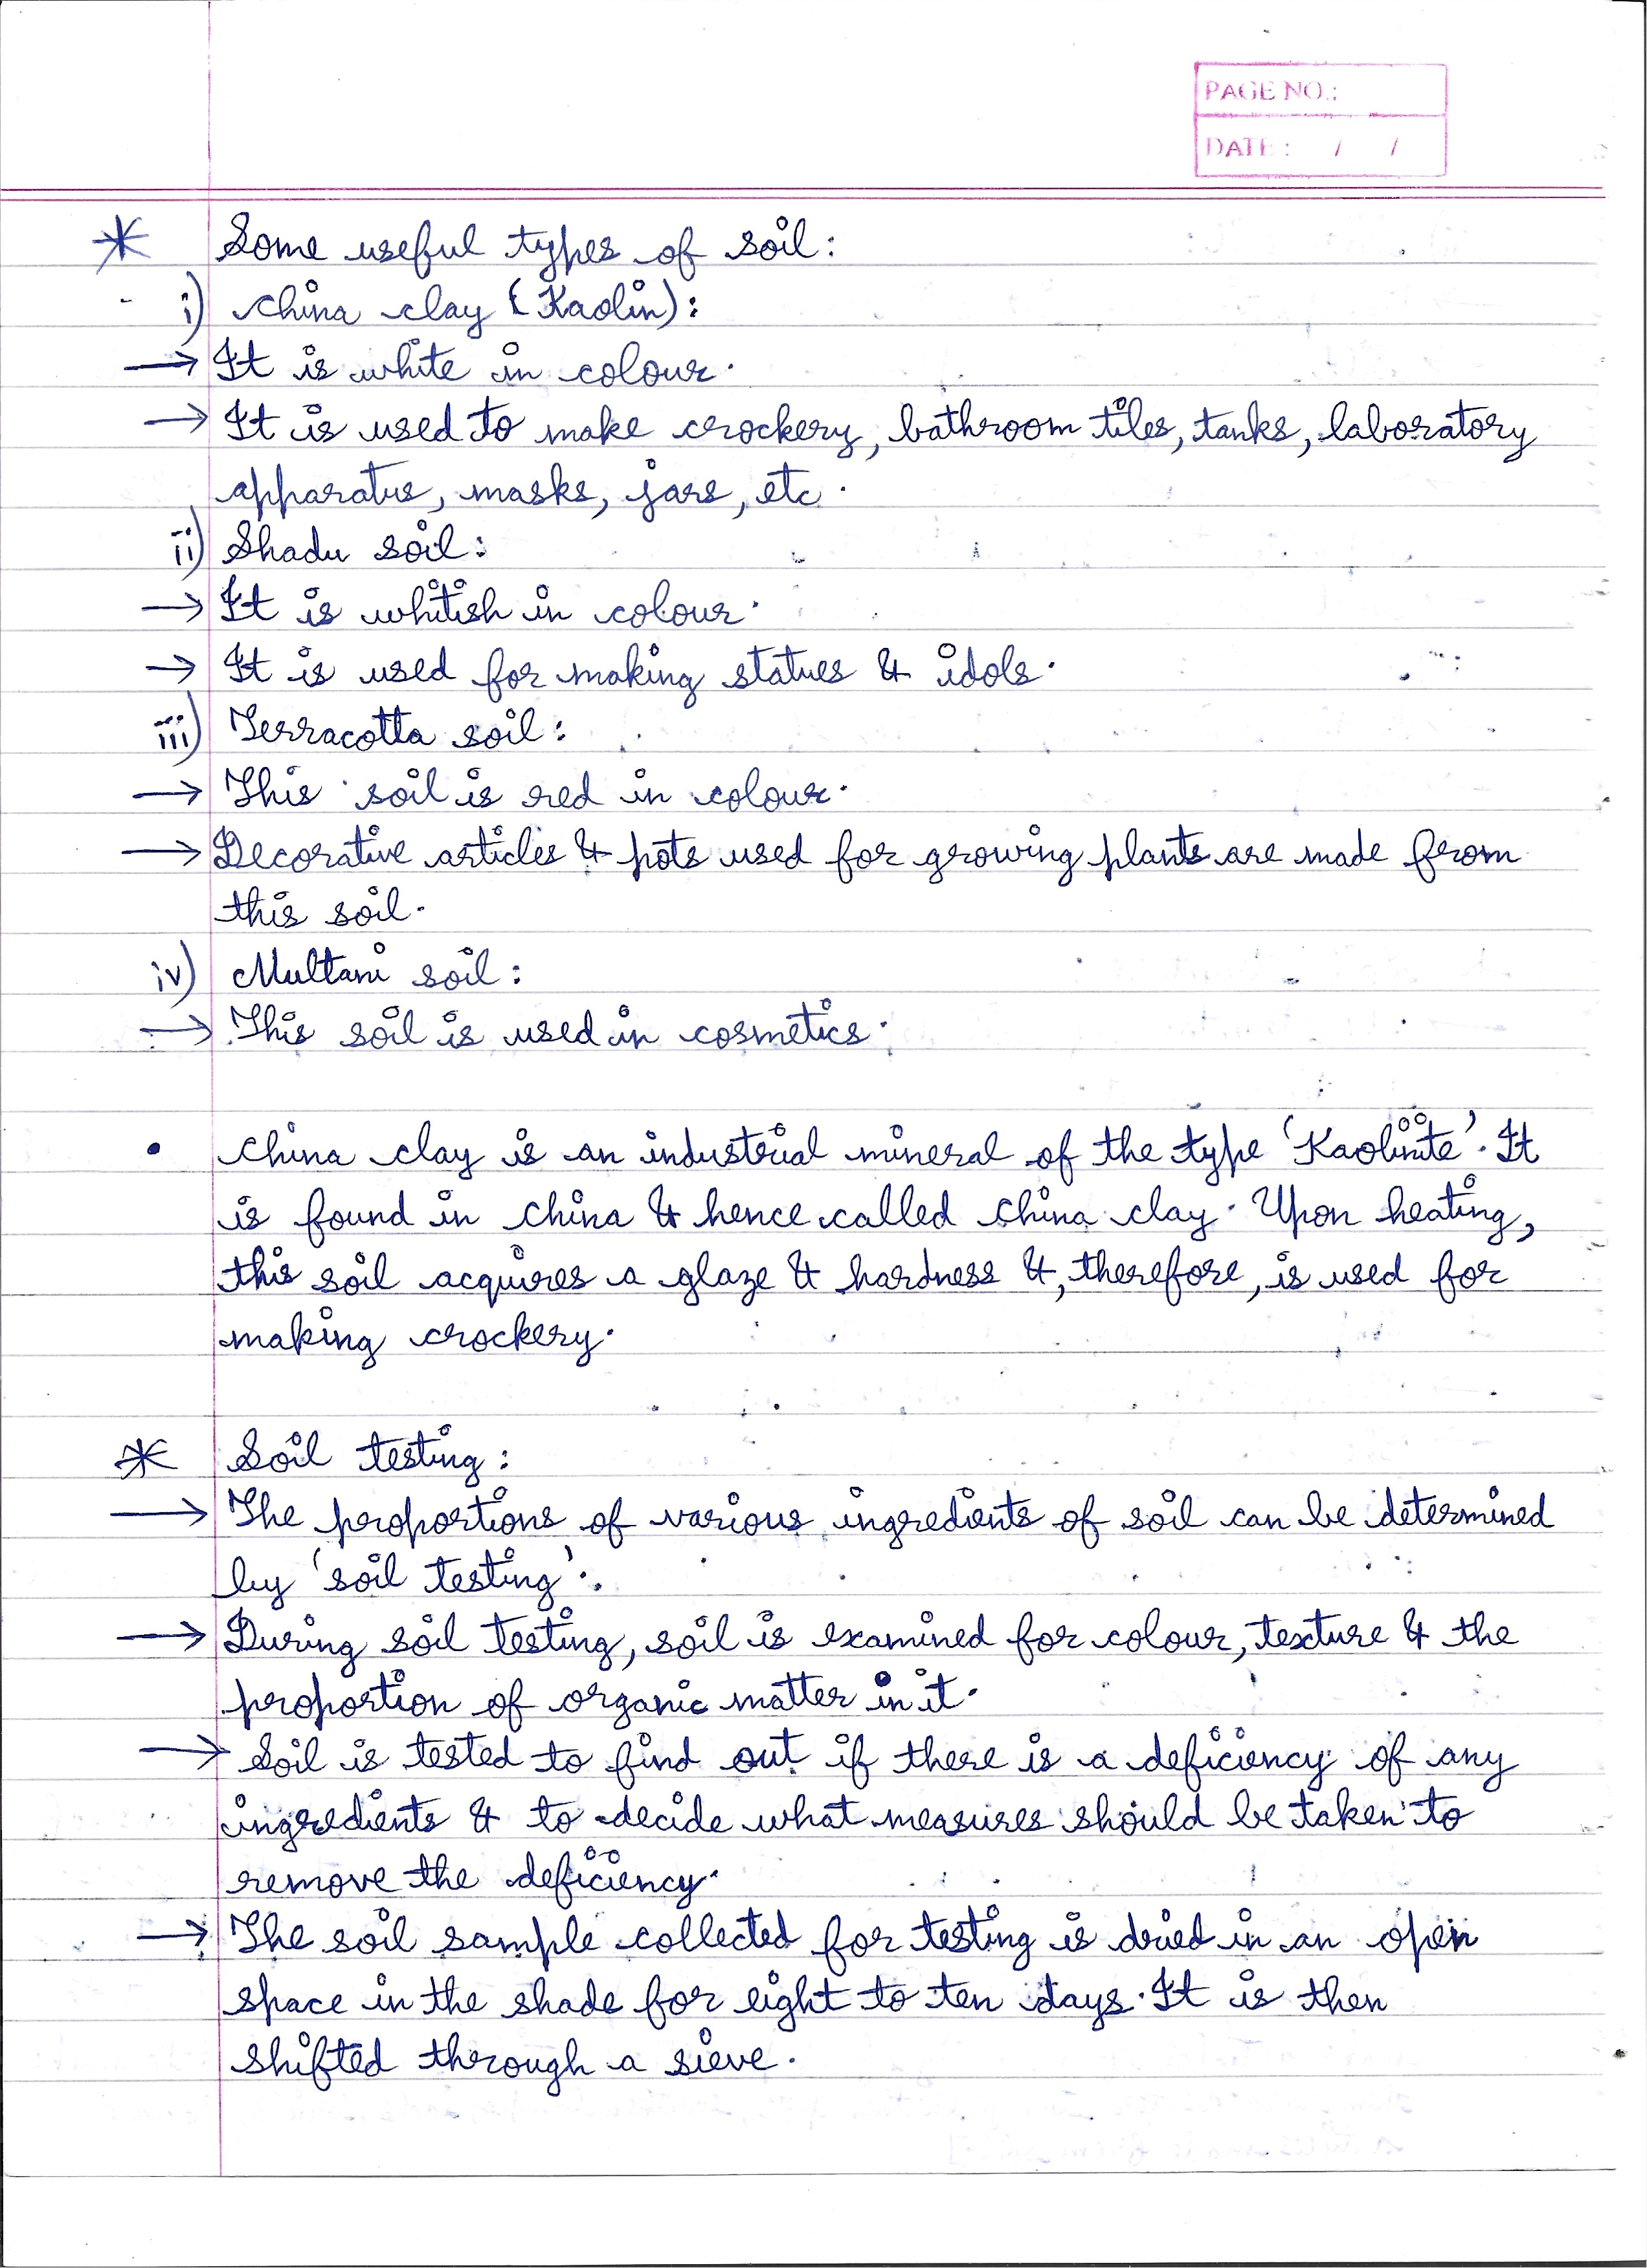 PAGE NO.:
DATE: / /
* Some useful types of soil:
i) China clay (Kaolin):
→ It is white in colour.
→ It is used to make crockery, bathroom tiles, tanks, laboratory
apparatus, masks, jars, etc.
ii) Shadu soil:
→ It is whitish in colour.
→ It is used for making statues & idols.
iii) Terracotta soil:
→ This soil is red in colour.
→ Decorative articles & pots used for growing plants are made from
this soil.
iv) Multani soil:
→ This soil is used in cosmetics.
• China clay is an industrial mineral of the type 'Kaolinite'. It
is found in China & hence called china clay. Upon heating,
this soil acquires a glaze & hardness &, therefore, is used for
making crockery.
* Soil testing:
→ The proportions of various ingredients of soil can be determined
by 'soil testing'.
→ During soil testing, soil is examined for colour, texture & the
proportion of organic matter in it.
→ Soil is tested to find out if there is a deficiency of any
ingredients & to decide what measures should be taken to
remove the deficiency.
→ The soil sample collected for testing is dried in an open
space in the shade for eight to ten days. It is then
shifted through a sieve.